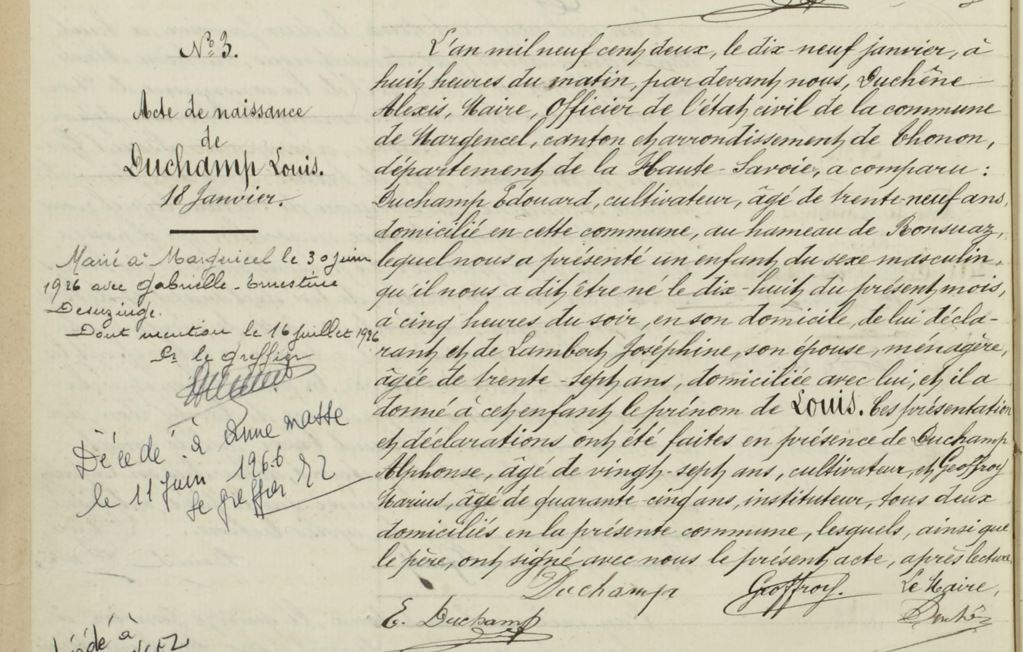 N° 3.
Acte de naissance
de
Duchamp Louis.
18 Janvier.
Marié à Margencel le 30 juin
1926 avec Gabrielle-Ernestine
Desuzinge.
Dont mention le 16 juillet 1926
le greffier
Décédé à Annemasse
le 11 juin 1966
le greffier
L'an mil neuf cent deux, le dix-neuf janvier, à
huit heures du matin, par devant nous, Duchêne
Alexis, Maire, Officier de l'état civil de la commune
de Margencel, canton et arrondissement de Thonon,
département de la Haute-Savoie, a comparu :
Duchamp Edouard, cultivateur, âgé de trente-neuf ans,
domicilié en cette commune, au hameau de Ronsuaz,
lequel nous a présenté un enfant du sexe masculin,
qu'il nous a dit être né le dix-huit du présent mois,
à cinq heures du soir, en son domicile, de lui décla-
rant et de Lambert Joséphine, son épouse, ménagère,
âgée de trente-sept ans, domiciliée avec lui, et il a
donné à cet enfant le prénom de Louis. Ces présentation
et déclarations ont été faites en présence de Duchamp
Alphonse, âgé de vingt-sept ans, cultivateur, et Geoffroy
Marius, âgé de quarante cinq ans, instituteur, tous deux
domiciliés en la présente commune, lesquels, ainsi que
le père, ont signé avec nous le présent acte, après lecture.
Duchamp Geoffroy. Le Maire,
E. Duchamp Duchê
décédé à